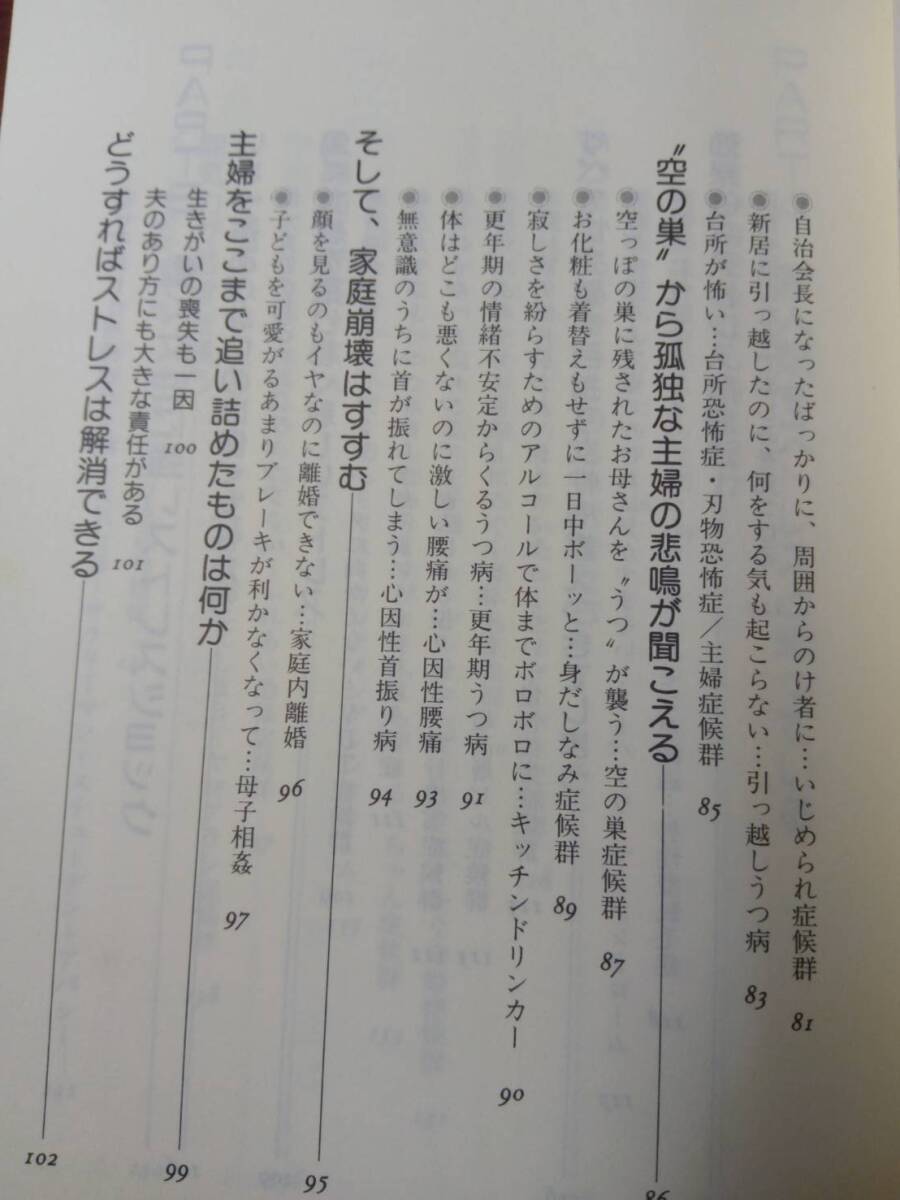 自治会長になったばっかりに、周囲からのけ者に…いじめられ症候群 81
新居に引っ越したのに、何をする気も起こらない…引っ越しうつ病 83
台所が怖い…台所恐怖症・刃物恐怖症／主婦症候群 85
〝空の巣〟から孤独な主婦の悲鳴が聞こえる 86
空っぽの巣に残されたお母さんを〝うつ〟が襲う…空の巣症候群 87
お化粧も着替えもせずに一日中ボーッと…身だしなみ症候群 89
寂しさを紛らすためのアルコールで体までボロボロに…キッチンドリンカー 90
更年期の情緒不安定からくるうつ病…更年期うつ病 91
体はどこも悪くないのに激しい腰痛が…心因性腰痛 93
無意識のうちに首が振れてしまう…心因性首振り病 94
そして、家庭崩壊はすすむ 95
顔を見るのもイヤなのに離婚できない…家庭内離婚 96
子どもを可愛がるあまりブレーキが利かなくなって…母子相姦 97
主婦をここまで追い詰めたものは何か 99
生きがいの喪失も一因 100
夫のあり方にも大きな責任がある 101
どうすればストレスは解消できる 102